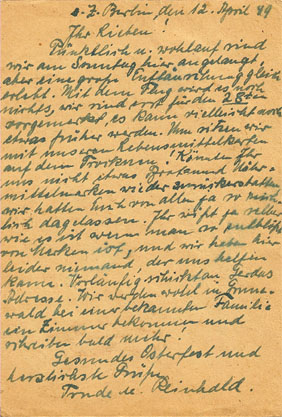 z. Z. Berlin, den 12. April 49
Ihr Lieben!
Pünktlich u. wohlauf sind
wir am Sonntag hier angelangt,
aber eine große Enttäuschung gleich
erlebt. Mit dem Flug wird es noch
nichts, wir sind erst für den 28ten
vorgemerkt, es kann vielleicht auch
etwas früher werden. Nun sitzen wir
mit unseren Lebensmittelkarten
auf dem Trocknen. Könnt Ihr
uns nicht etwas Brot und Nähr-
mittelmarken wieder zurückerstatten
wir hatten Euch von allem ja so reich-
lich dagelassen. Ihr wißt ja selber
wie es ist wenn man so entblößt
von Marken ist, und wir haben hier
leider niemand, der uns helfen
kann. Vorläufig schickt an Gerdas
Adresse. Wir werden wohl in Grune-
wald bei einer bekannten Familie
ein Zimmer bekommen und
schreiben bald mehr.
Gesundes Osterfest und
herzlichste Grüße
Trude u. Reinhold.